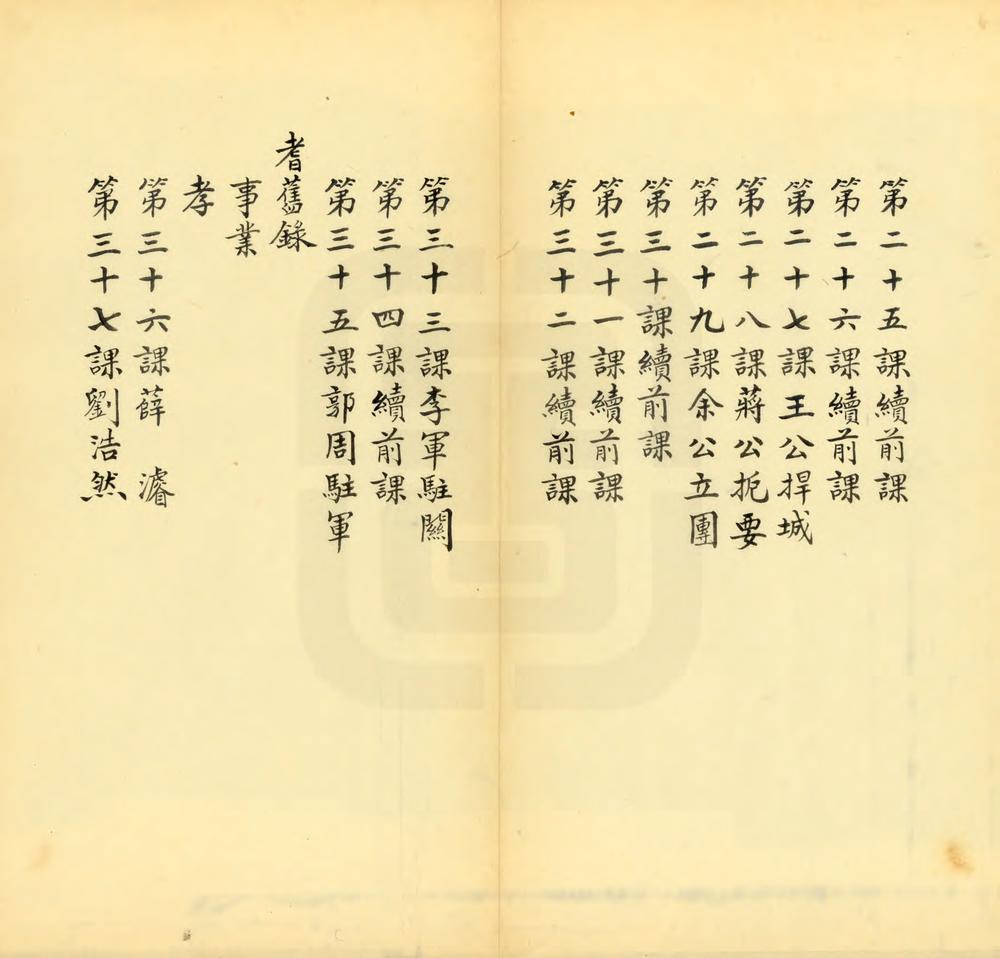 第二十五課續前課
第二十六課續前課
第二十七課王公捍城
第二十八課蔣公扼要
第二十九課余公立團
第三十課續前課
第三十一課續前課
第三十二課續前課
第三十三課李軍駐關
第三十四課續前課
第三十五課郭周駐軍
耆舊錄
事業
孝
第三十六課薛　濬
第三十七課劉浩然